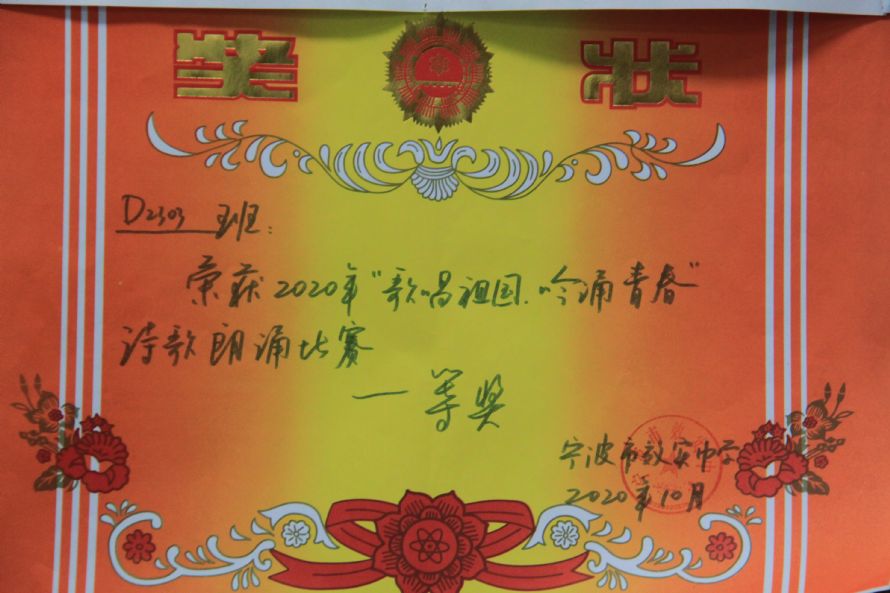 奖状
D2303 班：
荣获2020年"歌唱祖国.吟涌青春"
诗歌朗诵比赛
一等奖
宁波市效实中学
2020年10月